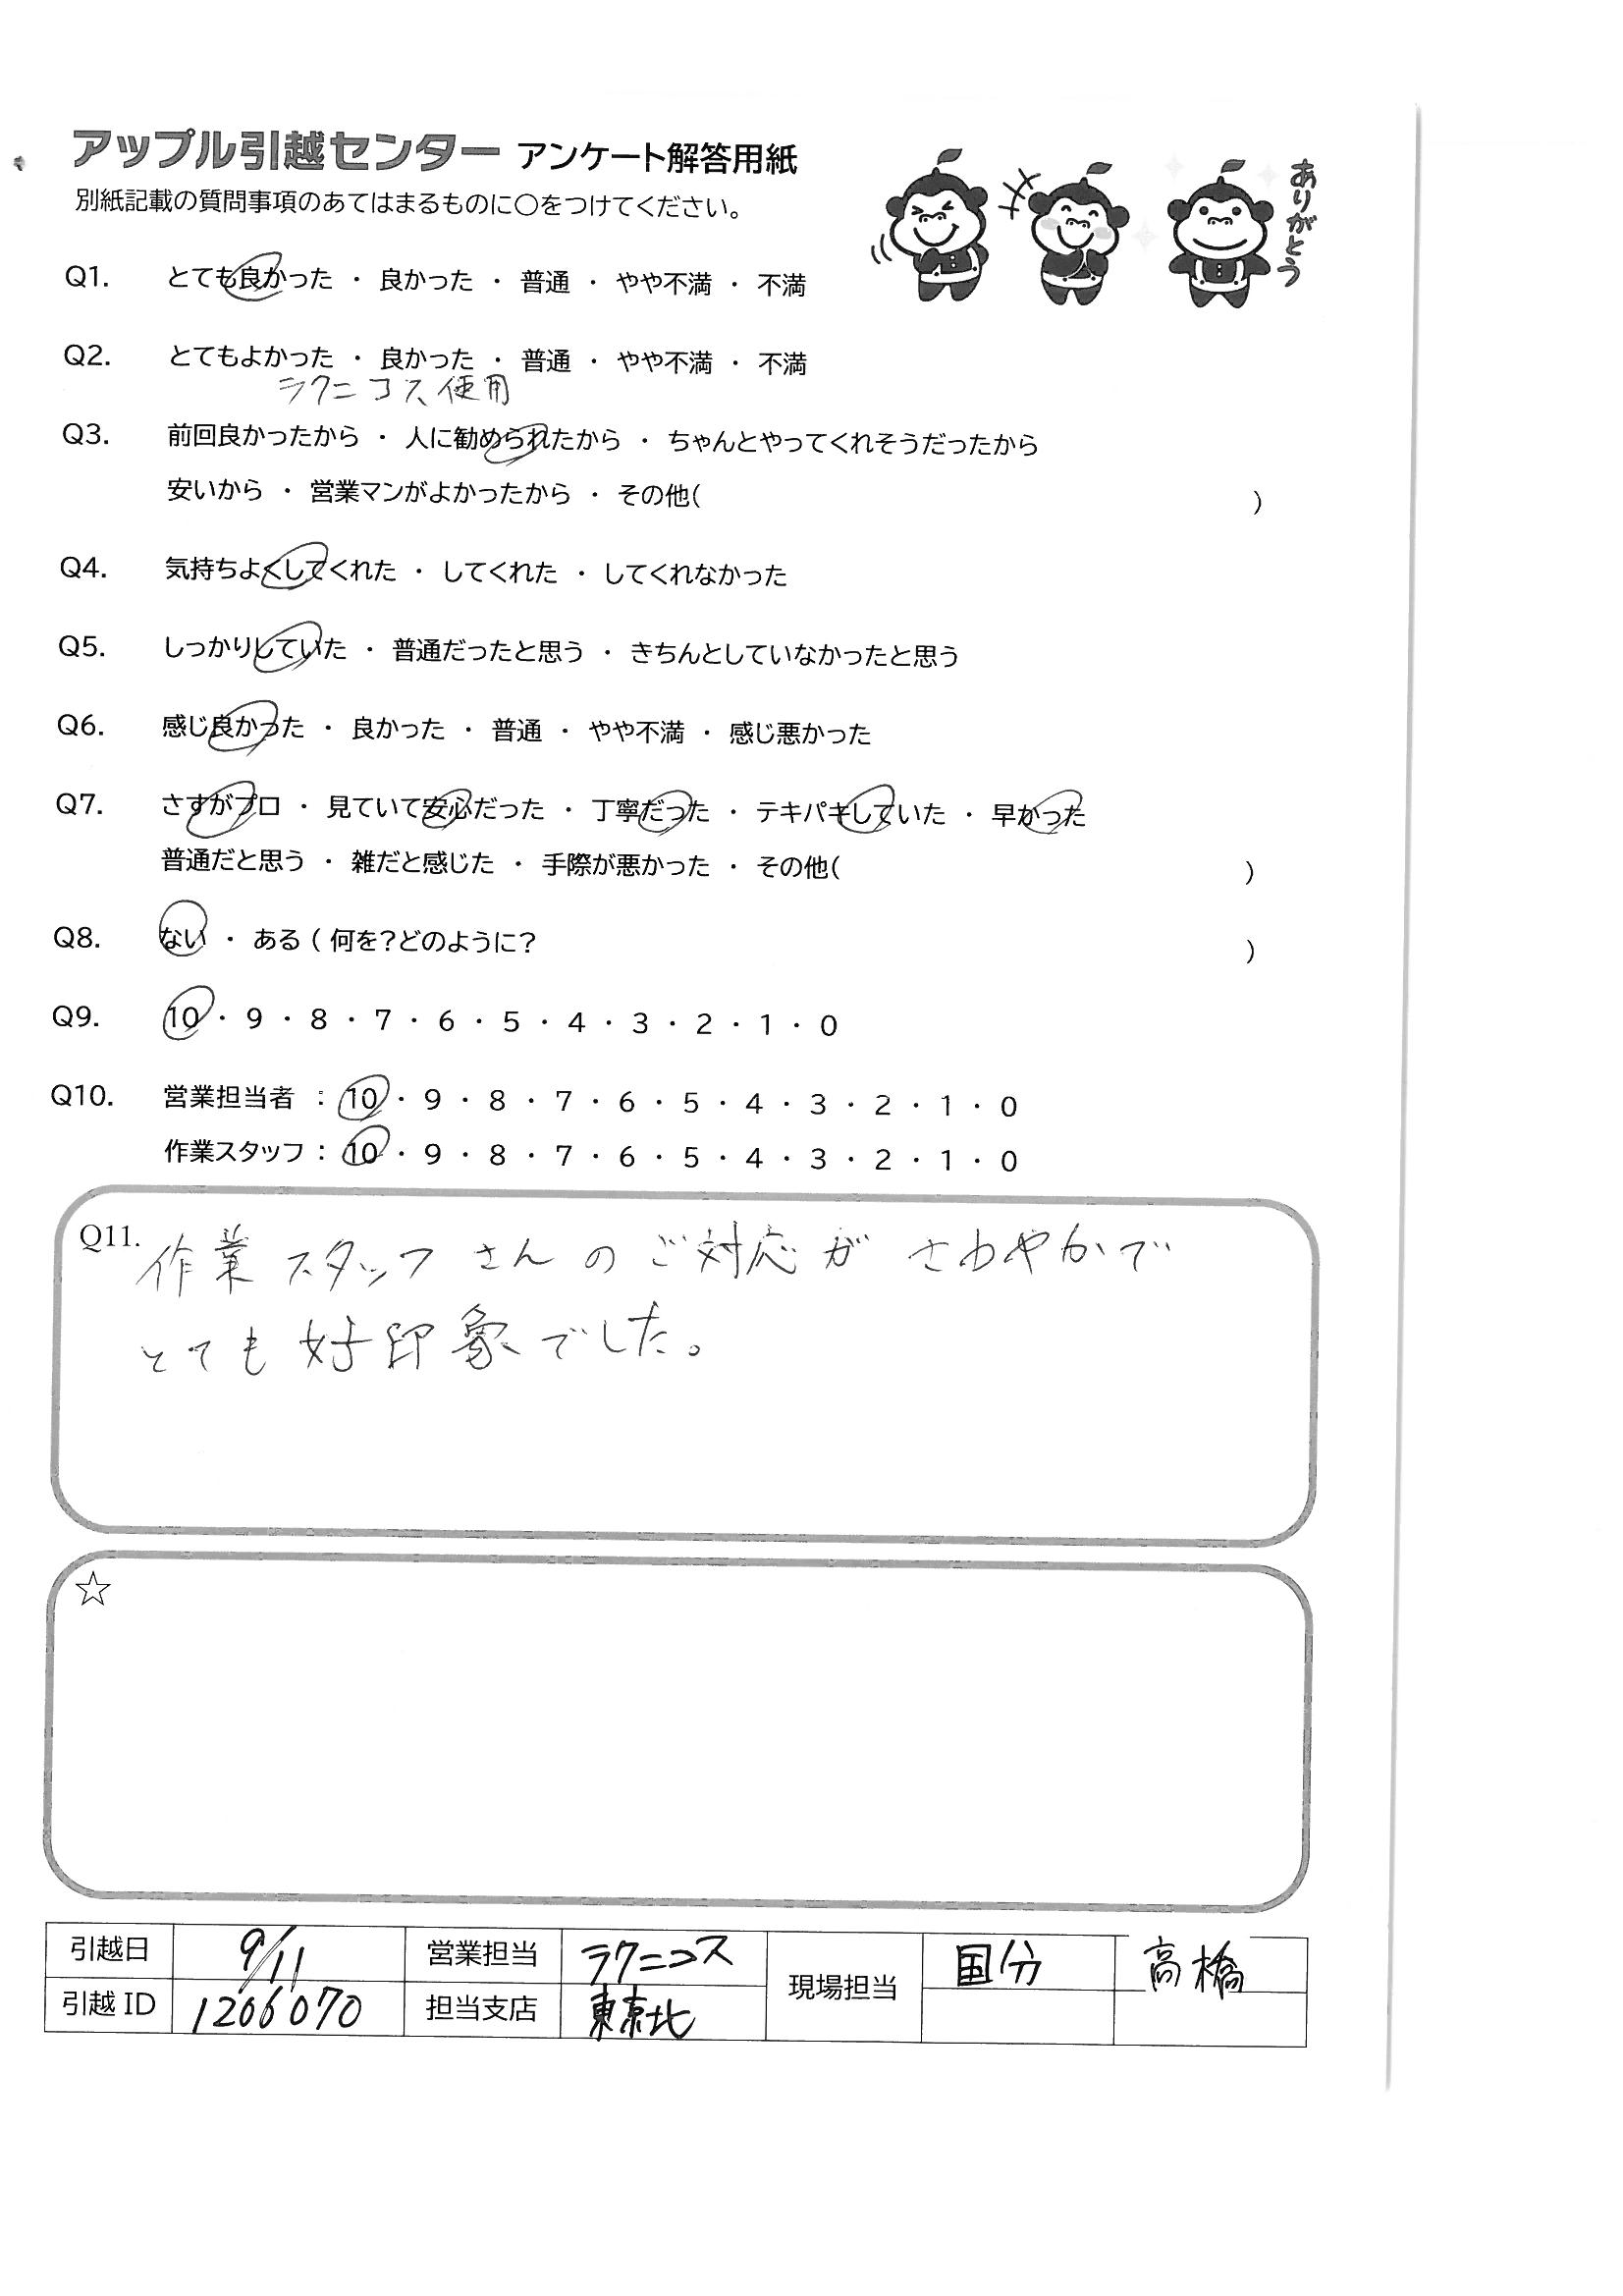 アップル引越センター アンケート解答用紙
別紙記載の質問事項のあてはまるものに○をつけてください。
ありがとう
Q1. とても良かった ・ 良かった ・ 普通 ・ やや不満 ・ 不満
Q2. とてもよかった ・ 良かった ・ 普通 ・ やや不満 ・ 不満
ラクニコス使用
Q3. 前回良かったから ・ 人に勧められたから ・ ちゃんとやってくれそうだったから
安いから ・ 営業マンがよかったから ・ その他( )
Q4. 気持ちよくしてくれた ・ してくれた ・ してくれなかった
Q5. しっかりしていた ・ 普通だったと思う ・ きちんとしていなかったと思う
Q6. 感じ良かった ・ 良かった ・ 普通 ・ やや不満 ・ 感じ悪かった
Q7. さすがプロ ・ 見ていて安心だった ・ 丁寧だった ・ テキパキしていた ・ 早かった
普通だと思う ・ 雑だと感じた ・ 手際が悪かった ・ その他( )
Q8. ない ・ ある ( 何を?どのように? )
Q9. 10 ・ 9 ・ 8 ・ 7 ・ 6 ・ 5 ・ 4 ・ 3 ・ 2 ・ 1 ・ 0
Q10. 営業担当者 : 10 ・ 9 ・ 8 ・ 7 ・ 6 ・ 5 ・ 4 ・ 3 ・ 2 ・ 1 ・ 0
作業スタッフ : 10 ・ 9 ・ 8 ・ 7 ・ 6 ・ 5 ・ 4 ・ 3 ・ 2 ・ 1 ・ 0
Q11. 作業スタッフさんのご対応がさわやかで
とても好印象でした。
☆
引越日 9/11 営業担当 ラクニコス 現場担当 国分 高橋
引越ID 1206070 担当支店 東京北